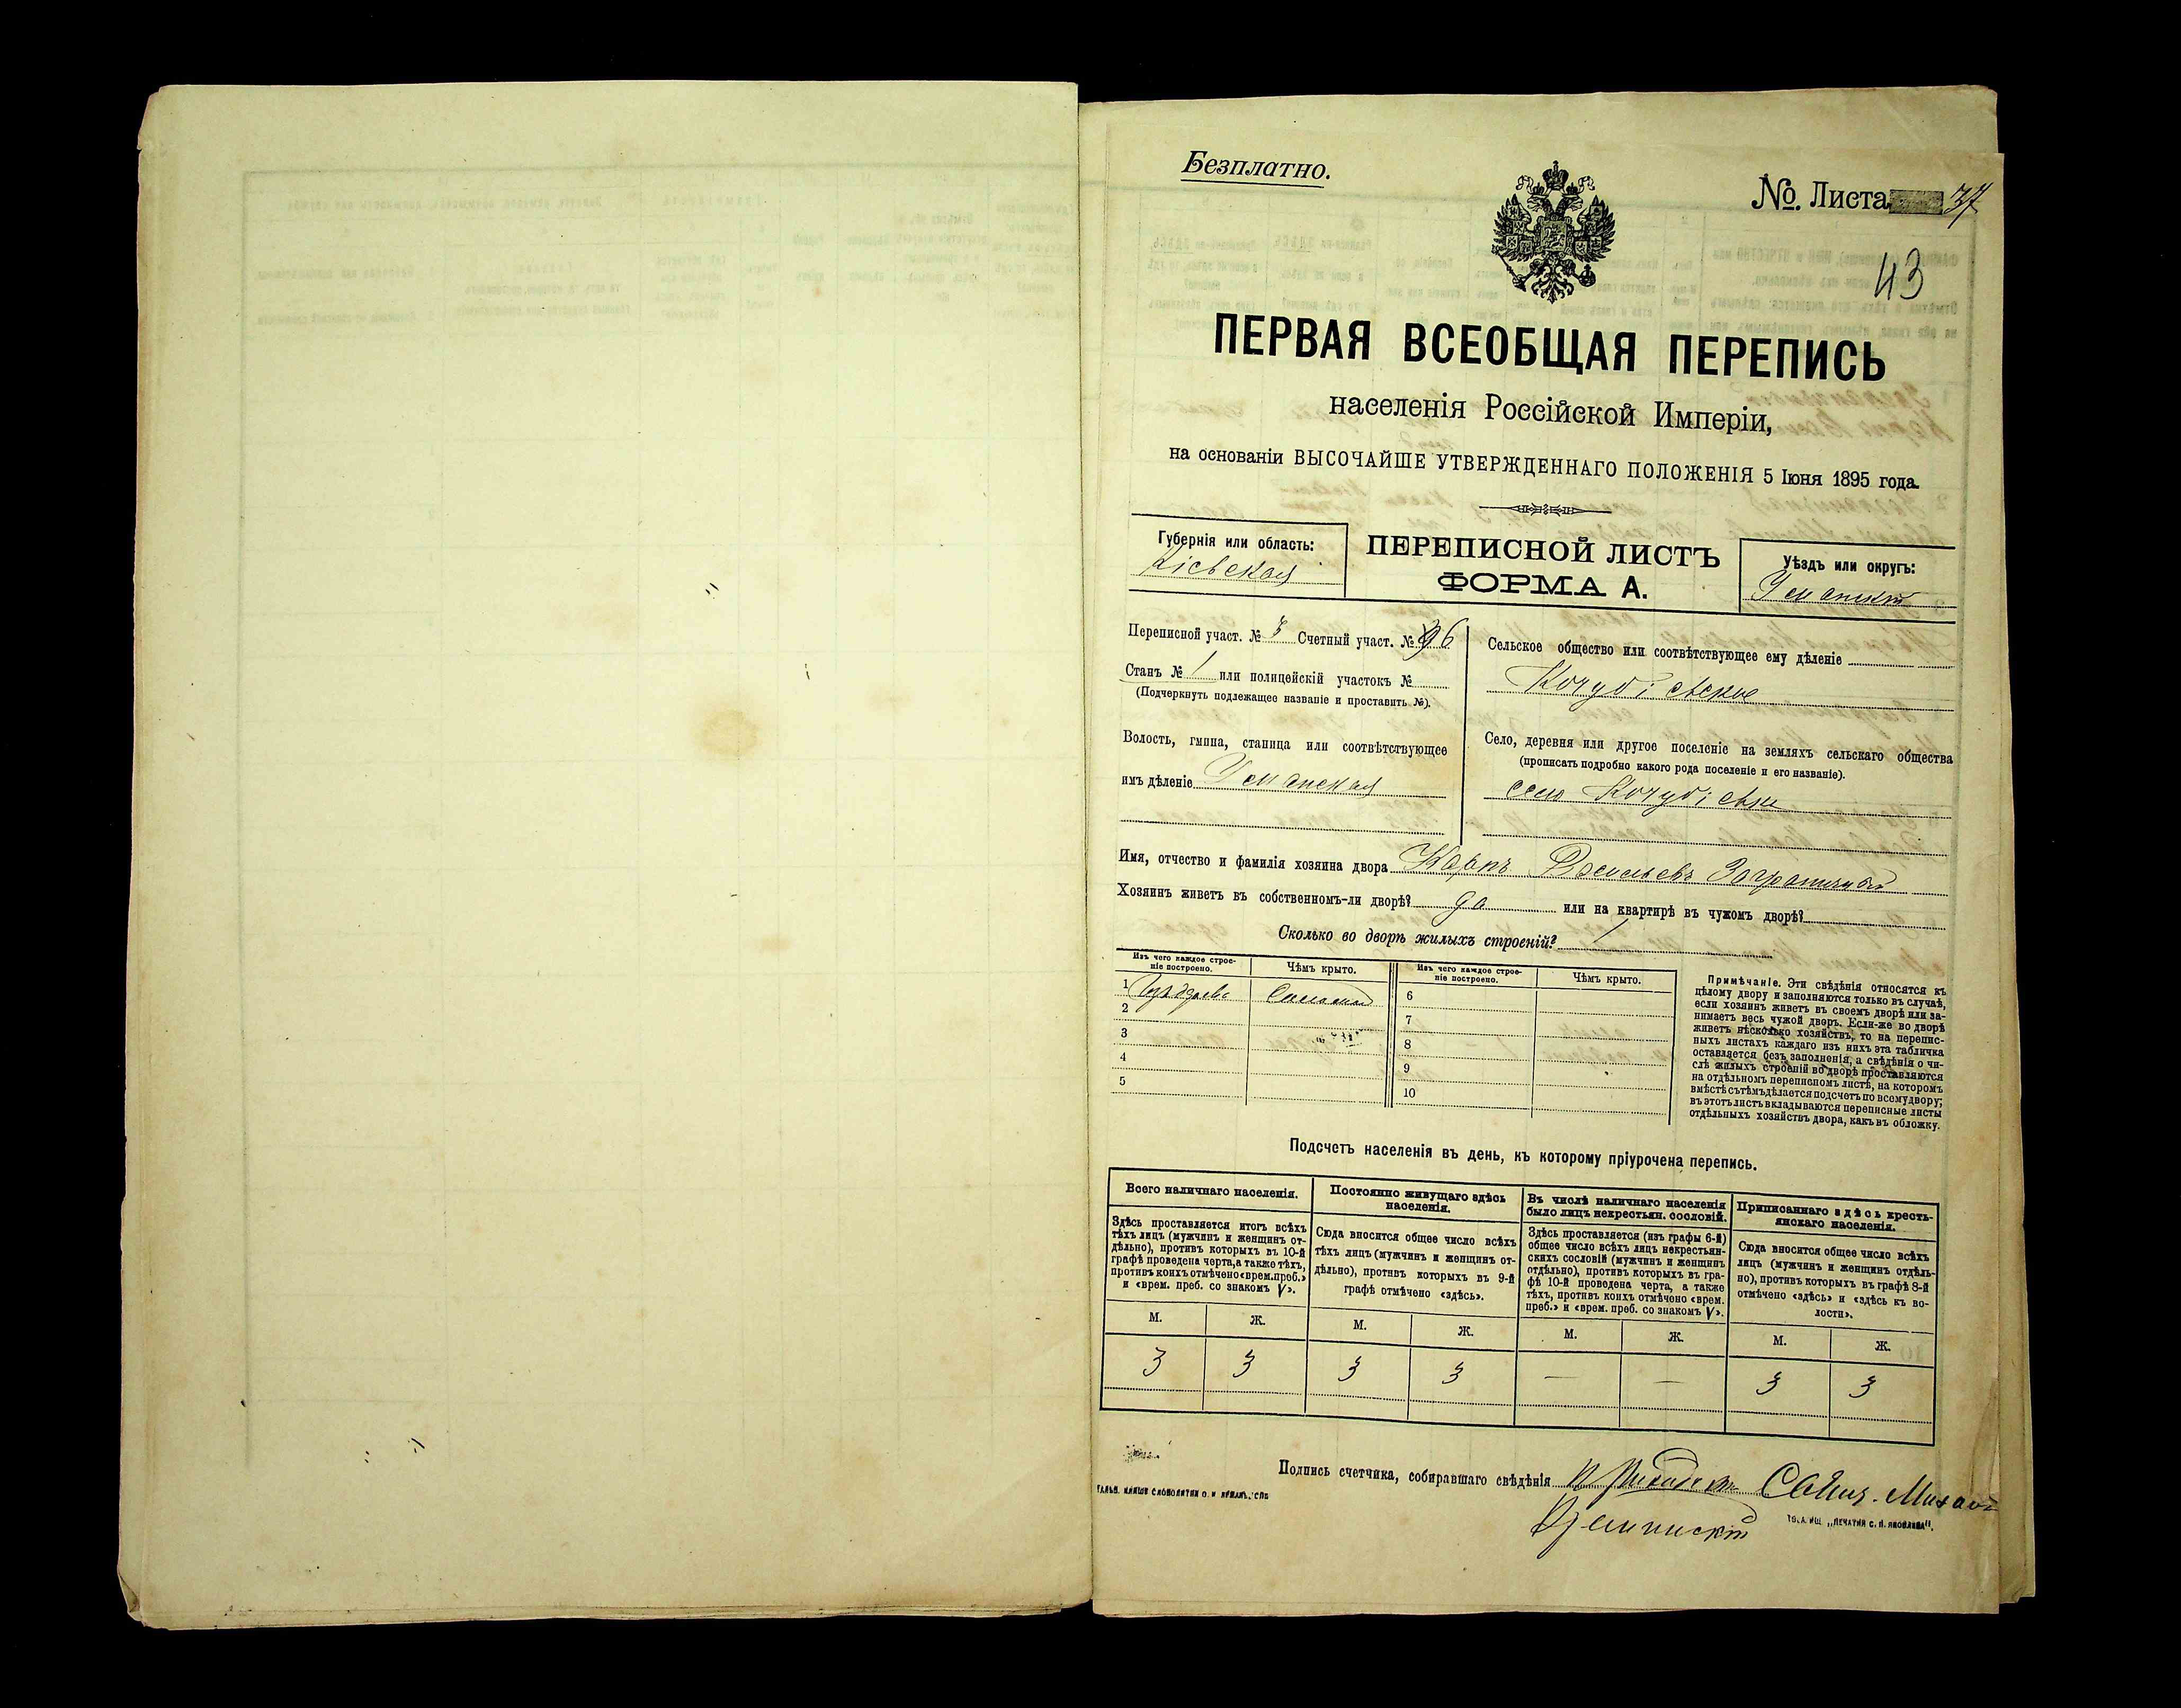 Безплатно.
№. Листа 37
43
ПЕРВАЯ ВСЕОБЩАЯ ПЕРЕПИСЬ
населенія Россійской Имперіи,
на основаніи ВЫСОЧАЙШЕ УТВЕРЖДЕННАГО ПОЛОЖЕНІЯ 5 Іюня 1895 года.
Губернія или область:
Кіевская
ПЕРЕПИСНОЙ ЛИСТЪ
ФОРМА А.
Уѣздъ или округъ:
Уманскій
Переписной участ. № 3 Счетный участ. №
Станъ № 1 или полицейскій участокъ №
(Подчеркнуть подлежащее названіе и проставить №).
Волость, гмина, станица или соотвѣтствующее
имъ дѣленіе Уманская
Сельское общество или соотвѣтствующее ему дѣленіе
Кочубіевское
Село, деревня или другое поселеніе на земляхъ сельскаго общества
(прописать подробно какого рода поселеніе и его названіе).
село Кочубіевка
Имя, отчество и фамилія хозяина двора Карпъ Васильевъ Заграничный
Хозяинъ живетъ въ собственномъ-ли дворѣ? да или на квартирѣ въ чужомъ дворѣ?
Сколько во дворѣ жилыхъ строеній? 1
Изъ чего каждое строе-
ніе построено.
Чѣмъ крыто.
Изъ чего каждое строе-
ніе построено.
Чѣмъ крыто.
1 Соломой
2
3
4
5
6
7
8
9
10
Примѣчаніе. Эти свѣдѣнія относятся къ
цѣлому двору и заполняются только въ случаѣ,
если хозяинъ живетъ въ своемъ дворѣ или за-
нимаетъ весь чужой дворъ. Если-же во дворѣ
живетъ нѣсколько хозяйствъ, то на перепис-
ныхъ листахъ каждаго изъ нихъ эта табличка
оставляется безъ заполненія, а свѣдѣнія о чи-
слѣ жилыхъ строеній во дворѣ проставляются
на отдѣльномъ переписномъ листѣ, на которомъ
вмѣстѣ съ тѣмъ дѣлается подсчетъ по всему двору;
въ этотъ листъ вкладываются переписные листы
отдѣльныхъ хозяйствъ двора, какъ въ обложку.
Подсчетъ населенія въ день, къ которому пріурочена перепись.
Всего наличнаго населенія.
Здѣсь проставляется итогъ всѣхъ
тѣхъ лицъ (мужчинъ и женщинъ от-
дѣльно), противъ которыхъ въ 10-й
графѣ проведена черта, а также тѣхъ,
противъ коихъ отмѣчено «врем. преб.»
и «врем. преб. со знакомъ V».
Постоянно живущаго здѣсь
населенія.
Сюда вносится общее число всѣхъ
тѣхъ лицъ (мужчинъ и женщинъ от-
дѣльно), противъ которыхъ въ 9-й
графѣ отмѣчено «здѣсь».
Въ числѣ наличнаго населенія
было лицъ некрестьян. сословій.
Здѣсь проставляется (изъ графы 6-й)
общее число всѣхъ лицъ некрестьян-
скихъ сословій (мужчинъ и женщинъ
отдѣльно), противъ которыхъ въ гра-
фѣ 10-й проведена черта, а также
тѣхъ, противъ коихъ отмѣчено «врем.
преб.» и «врем. преб. со знакомъ V».
Приписаннаго здѣсь кресть-
янскаго населенія.
Сюда вносится общее число всѣхъ
лицъ (мужчинъ и женщинъ отдѣль-
но), противъ которыхъ въ графѣ 8-й
отмѣчено «здѣсь» и «здѣсь къ во-
лости».
М. Ж. М. Ж. М. Ж. М. Ж.
3 3 3 3 — — 3 3
Подпись счетчика, собиравшаго свѣдѣнія